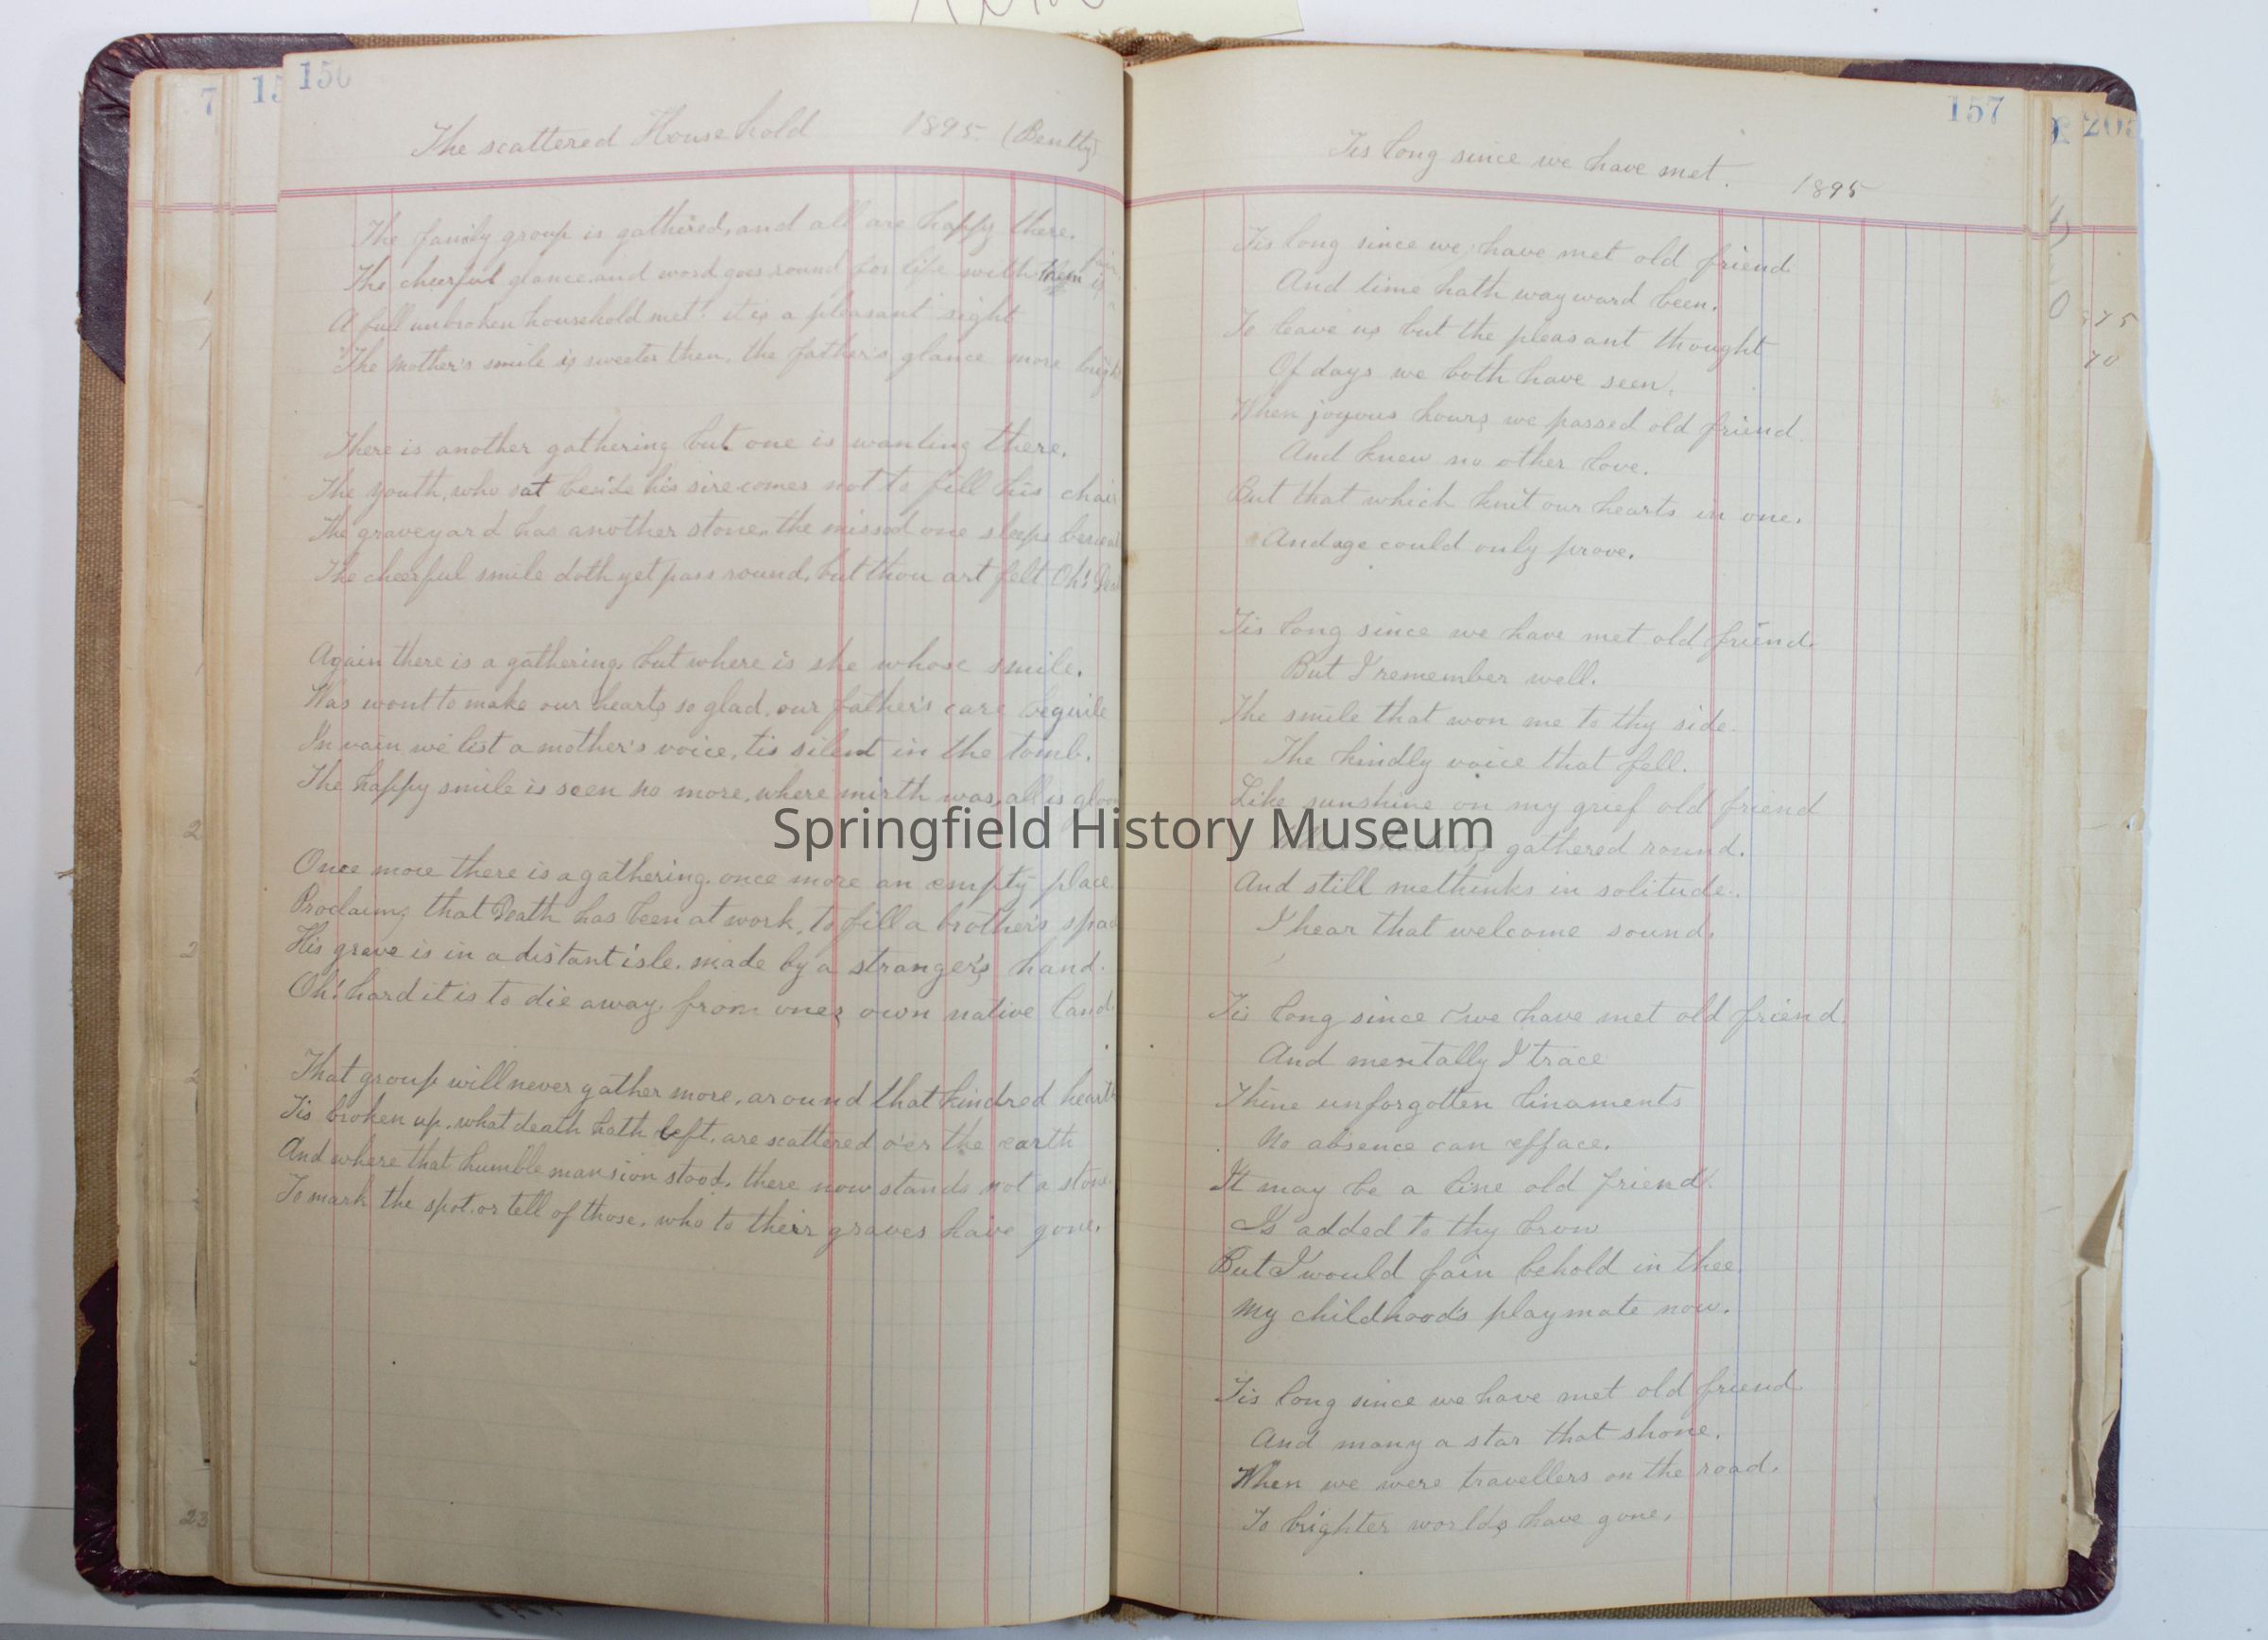 150
The scattered Household 1895 (Bently)
The family group is gathered, and all are happy there.
The cheerful glance and word goes round for life with them is fair
A full unbroken household met! it is a pleasant sight
The Mother's smile is sweeter then, the father's glance more brigh
There is another gathering but one is wanting there.
The youth, who sat beside his sire comes not to fill his chair
The graveyard has another stone, the missed one sleeps benea
The cheerful smile doth yet pass round, but thou art felt Oh! Dea
Again there is a gathering, but where is she whose smile.
Was wont to make our hearts so glad, our father's care beguile
In vain we list a mother's voice, tis silent in the tomb.
The happy smile is seen no more, where mirth was, all is gloo
Once more there is a gathering, once more an empty place.
Proclaims that Death has been at work, to fill a brother's spac
His grave is in a distant isle, made by a stranger's hand.
Oh! hard it is to die away, from ones own native land.
That group will never gather more, around that kindred heart
Tis broken up, what death hath left, are scattered o'er the earth
And where that humble mansion stood, there now stands not a stone
To mark the spot, or tell of those, who to their graves have gone.
157
Tis long since we have met. 1895
Tis long since we have met old friend
And time hath wayward been.
To leave us but the pleasant thought
Of days we both have seen.
When joyous hours we passed old friend.
And knew no other love.
But that which knit our hearts in one.
And age could only prove.
Tis long since we have met old friend.
But I remember well.
The smile that won me to thy side.
The kindly voice that fell.
Like sunshine on my grief old friend
gathered round.
And still methinks in solitude.
I hear that welcome sound.
Tis long since we have met old friend.
And mentally I trace
Thine unforgotten linaments
No absence can efface.
It may be a line old friend.
Is added to thy brow
But I would fain behold in thee.
My childhood's playmate now.
Tis long since we have met old friend.
And many a star that shone.
When we were travellers on the road.
To brighter worlds have gone.
Springfield History Museum